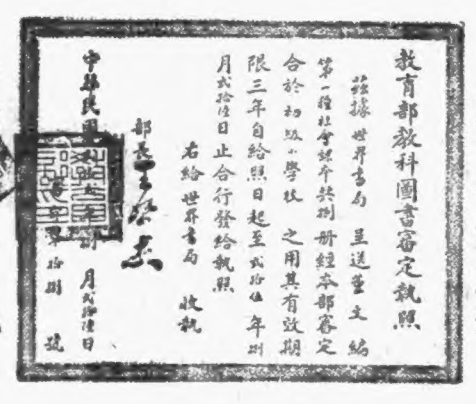 教育部教科圖書審定執照
茲據世界書局呈送董文編
第一種社會課本共捌册經本部審定
合於初級小學校之用其有效期
限三年自給照日起至貳拾伍年捌
月貳拾陸日止合行發給執照
右給世界書局收執
部長王
中華民國 年捌月貳拾陸日
字第 拾捌號